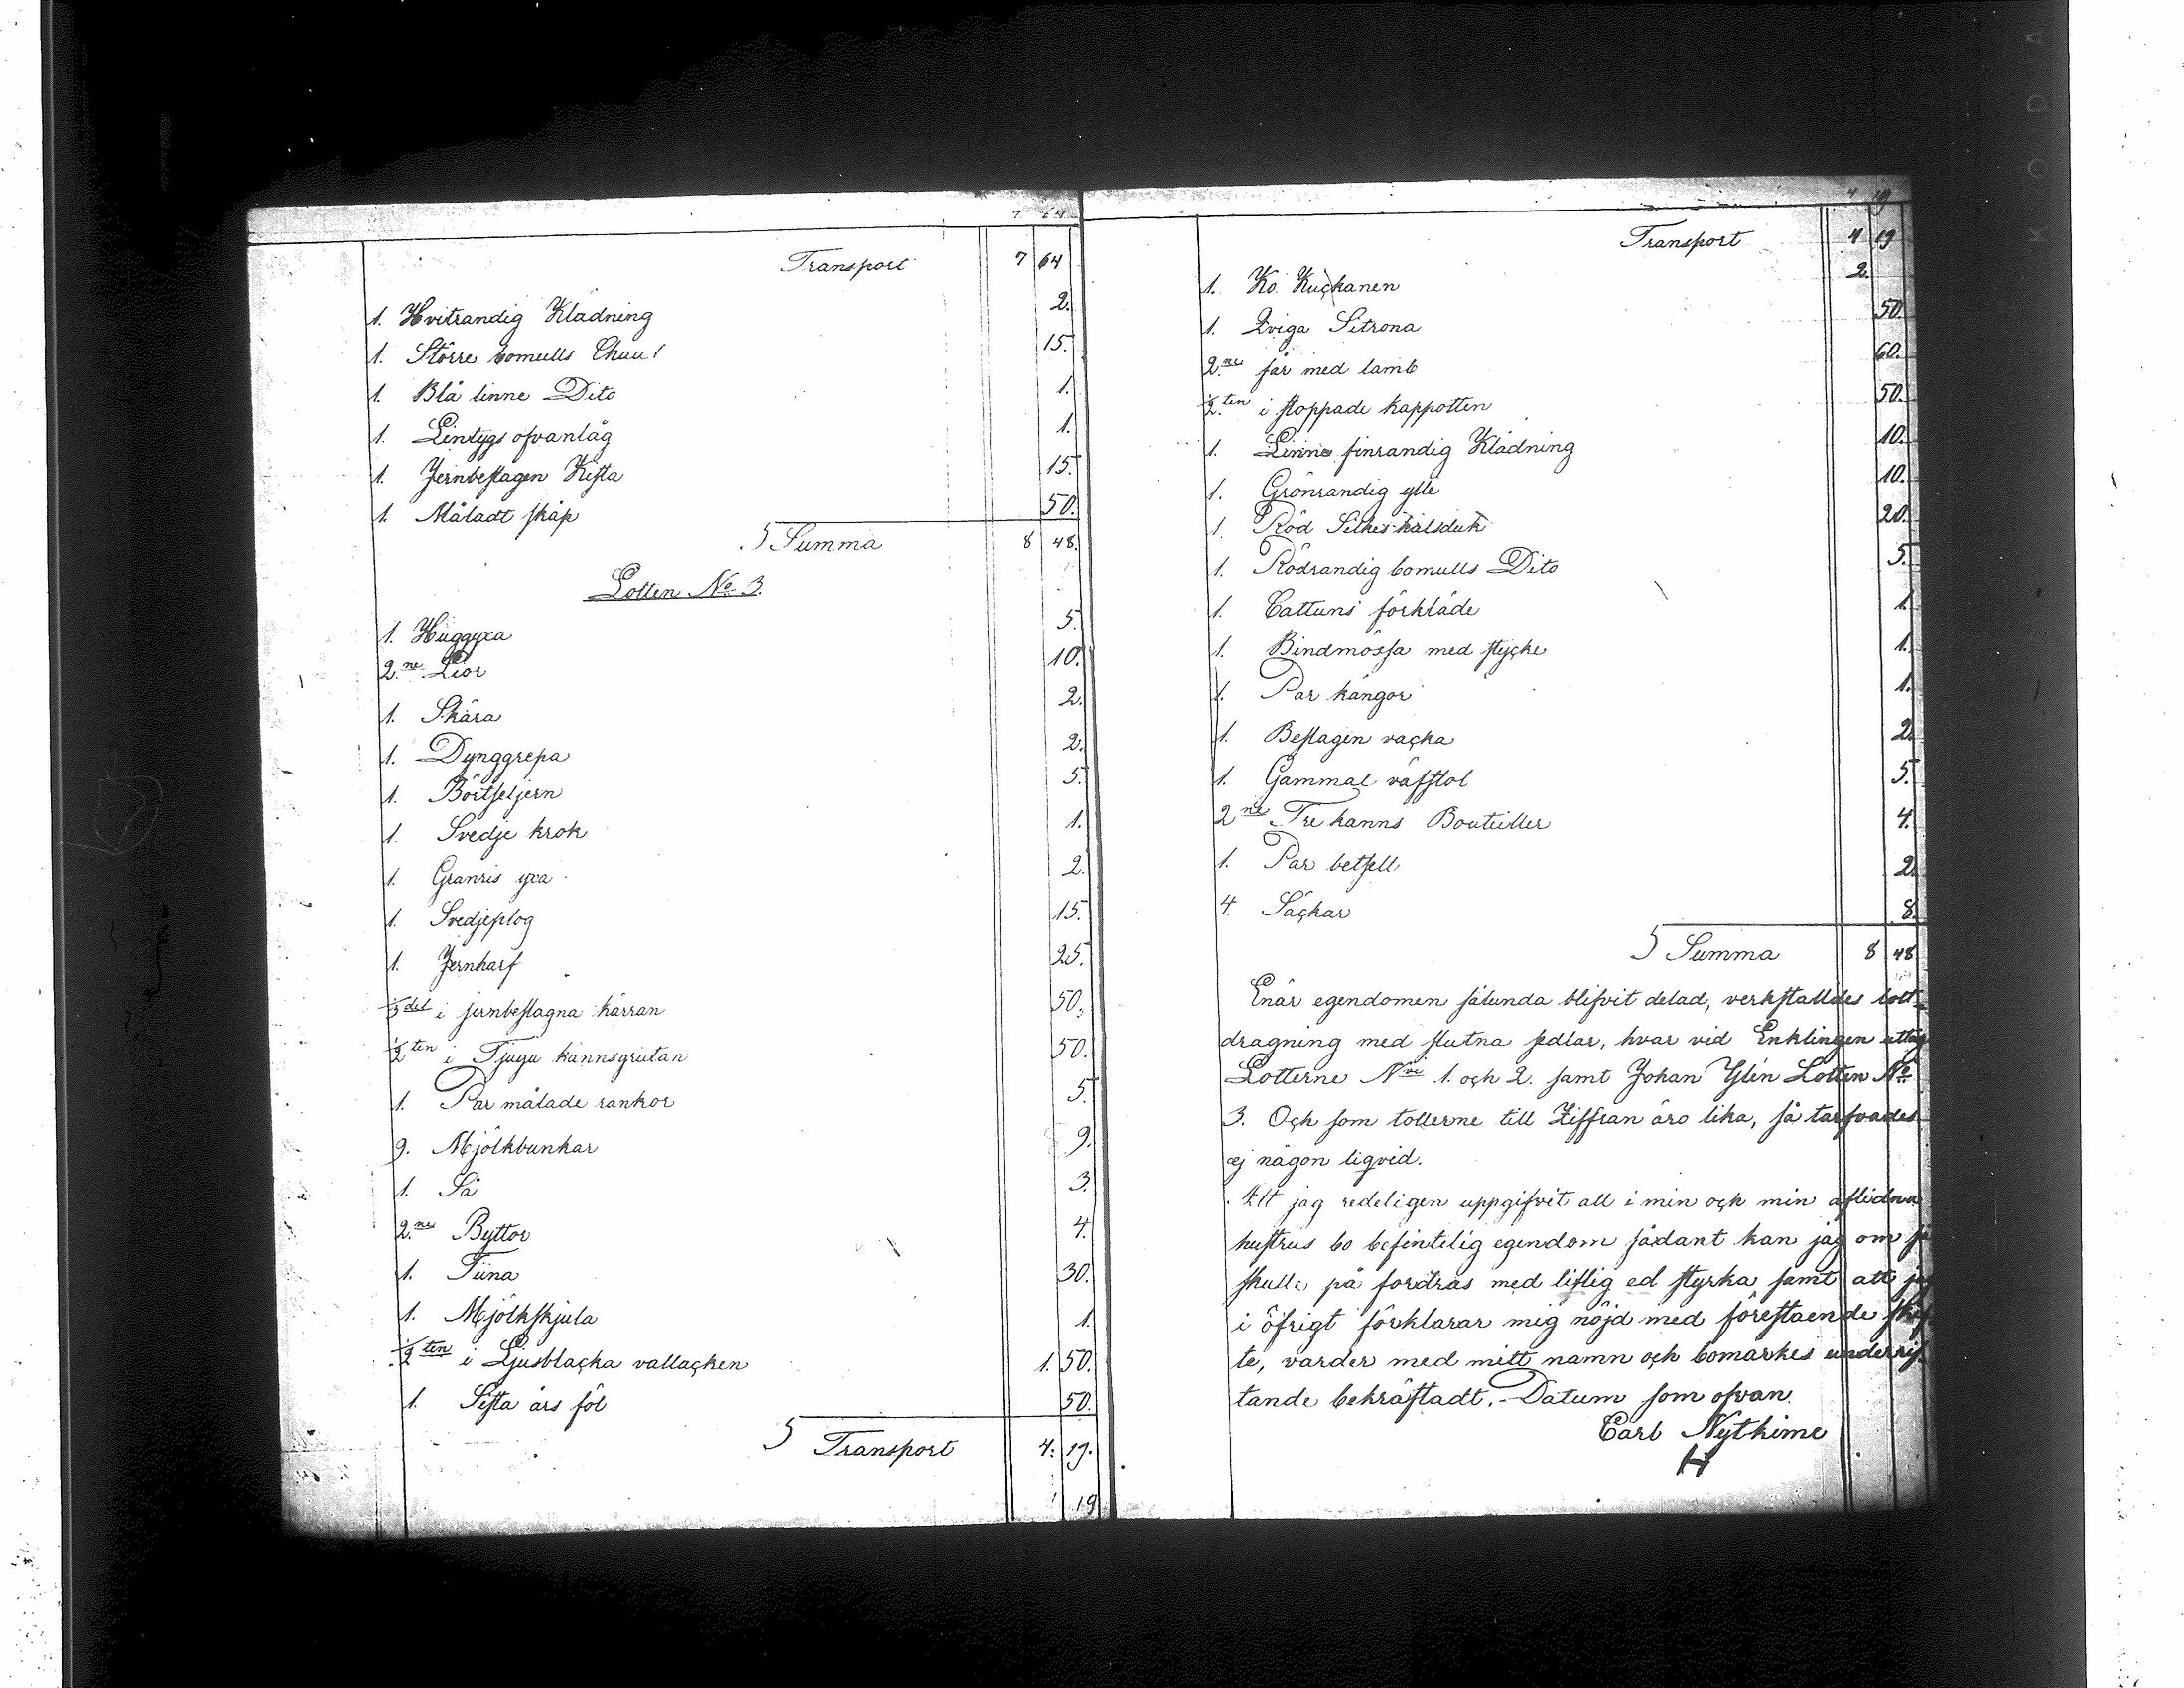 7 64
Transport 7 64
1. Hvitrandig Klädning 2.
1. Större bomulls Chaul 15.
1. Blå linne Dito 1.
1. Lintygs ofvanlåg 1.
1. Jernbeslagen Kista 15.
1. Måladt skåp 50.
Summa 8 48.
Lotten No 3.
1. Huggyxa 5.
2.ne Lior 10.
1. Skära 2.
1. Dynggrepa 2.
1. Börtseljern 5.
1. Svedje krok 1.
1. Granris yxa 2.
1. Svedjeplog 15.
1. Jernharf 25.
1/3 del i jernbeslagna kärran 50.
1/2 ten i Tjugu kannsgrutan 50.
1. Par målade rankor 5.
9. Mjölkbunkar 9.
1. Så 3.
2.ne Byttor 4.
1. Tiina 30.
1. Mjölkskjula 1.
1/2 ten i Ljusblacka vallacken 1. 50.
1. Sista års föl 50.
Transport 4. 19.
19
4 19
Transport 4 19
1. Ko Kuckanen 2.
1. Qviga Sitrona 50.
2.ne får med lamb 60.
1/2 ten i stoppade kappotten 50.
1. Linne finrandig Klädning 10.
1. Grönrandig ylle 10.
1. Röd Silkes halsduk 20.
1. Rödrandig bomulls Dito 5.
1. Cattuns förkläde 1.
1. Bindmössa med stycke 1.
1. Par kängor 1.
1. Beslagen vacka 2.
1. Gammal väfstol 5.
2 ne Tre kanns Bouteiller 4.
1. Par betsell 2.
4. Säckar 8.
Summa 8 48
Enär egendomen sålunda blifvit delad, verkstalldes lott=
dragning med slutna sedlar, hvar vid Enklingen uttog
Lotterne No 1. och 2. samt Johan Ylén Lotten No
3. Och som lotterne till Ziffran äro lika, så tarfvades
ej någon liqvid.
Att jag redeligen uppgifvit all i min och min aflidna
hustrus bo befintelig egendom sådant kan jag om så
skulle på fordras med liflig ed styrka samt att jag
i öfrigt förklarar mig nöjd med förestaende skif
te, varder med mitt namn och bomärkes underrit
tande bekräftadt. Datum som ofvan.
Carl Nythime
KODA